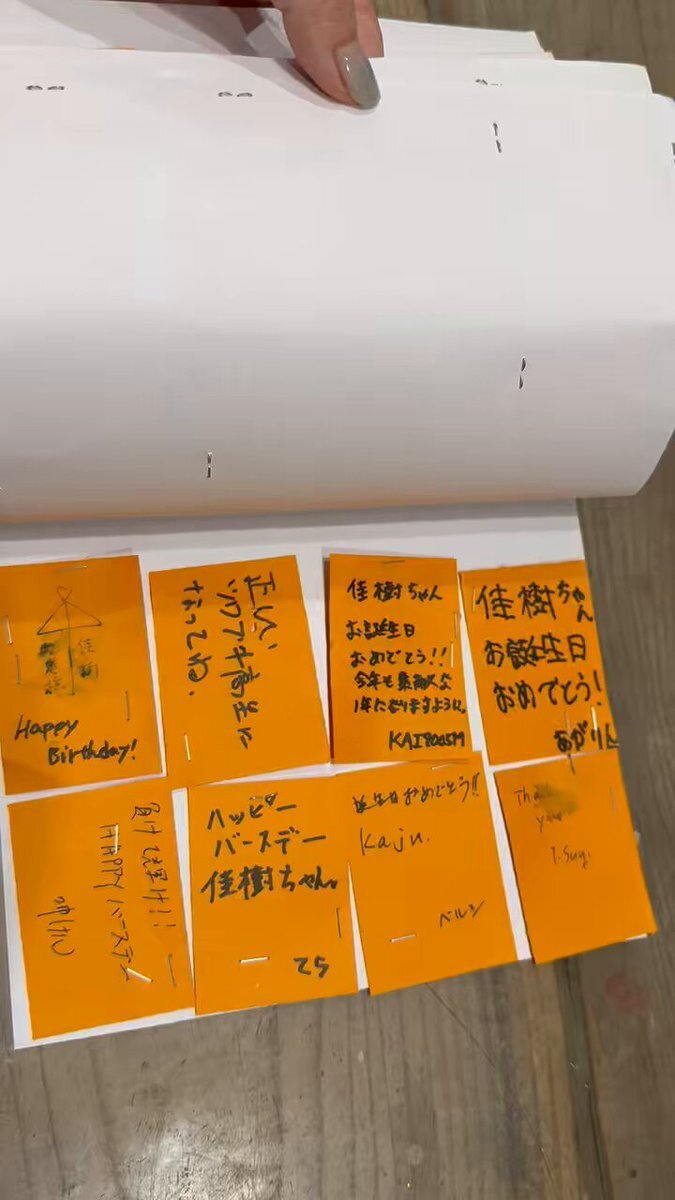 佳樹
Happy
Birthday!
正しい
ツワブキ高生に
なってね。
佳樹ちゃん
お誕生日
おめでとう!!
今年も素敵な
1年になりますように。
佳樹ちゃん
お誕生日
おめでとう!
あがりん
負けて輝け!!
HAPPYバースデー
ハッピー
バースデー
佳樹ちゃん。
誕生日おめでとう!!
Kaju.
ベルン
Thank
you